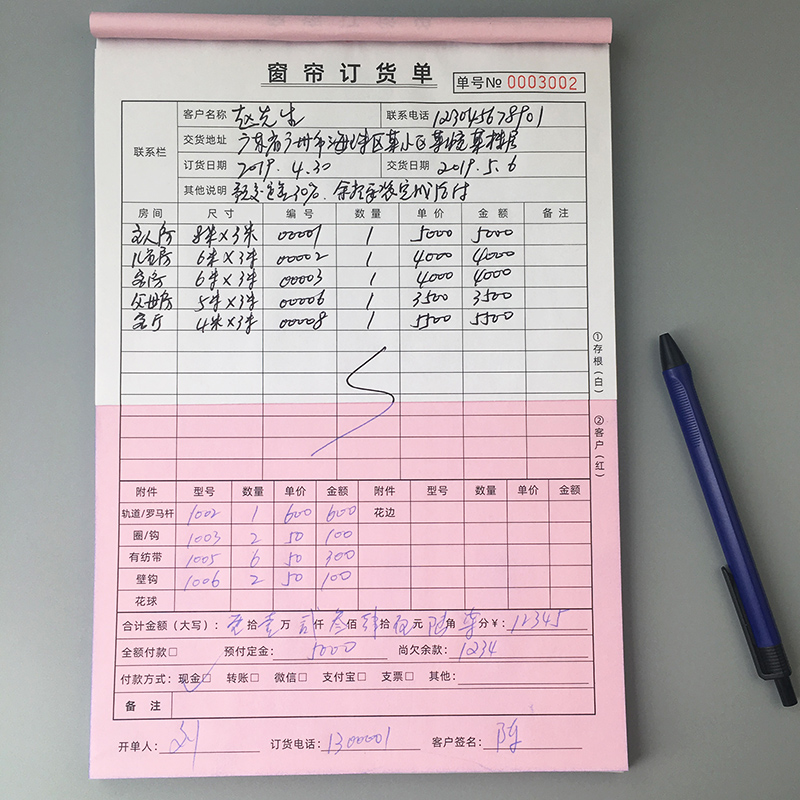 窗帘订货单 单号№ 0003002
联系栏
客户名称 赵先生 联系电话 123045678901
交货地址 广东省广州市海珠区某小区某幢某楼层
订货日期 2019.4.30 交货日期 2019.5.6
其他说明 30%.
房间 尺寸 编号 数量 单价 金额 备注
主人房 8米×3米 00001 1 5000 5000
儿童房 6米×3米 00002 1 4000 4000
客房 6米×3米 00003 1 4000 4000
父母房 5米×3米 00006 1 3500 3500
客厅 4米×3米 00008 1 5500 5500
①存根(白)
②客户(红)
附件 型号 数量 单价 金额 附件 型号 数量 单价 金额
轨道/罗马杆 1002 1 600 600 花边
圈/钩 1003 2 50 100
有纺带 1005 6 50 300
壁钩 1006 2 50 100
花球
合计金额(大写): 零拾壹万贰仟叁佰肆拾伍元陆角零分¥: 12345
全额付款□ 预付定金: 5000 尚欠余款: 1234
付款方式: 现金□ 转账□ 微信□ 支付宝□ 支票□ 其他:
备注
开单人: 刘 订货电话: 1300001 客户签名: 陈